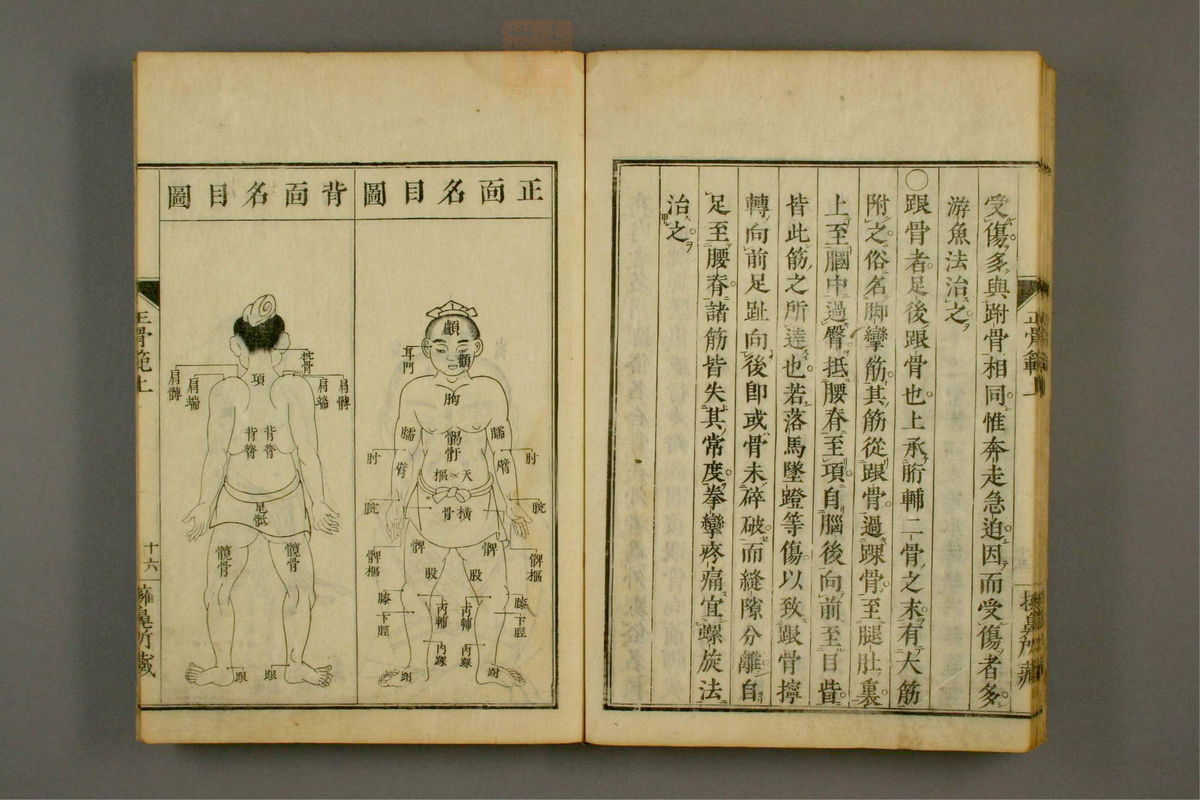 受傷多與跗骨相同惟奔走急迫因而受傷者多
游魚法治之
○跟骨者足後跟骨也上承䯒輔二骨之末有大筋
附之俗名脚攣筋其筋從跟骨過踝骨至腿肚裏
上至膕中過臀抵腰脊至項自腦後向前至目眥
皆此筋之所達也若落馬墜蹬等傷以致跟骨擰
轉向前足趾向後卽或骨未碎破而縫隙分離自
足至腰脊諸筋皆失其常度拳攣疼痛宜螺旋法
治之
正骨範上
正面名目圖
顱
顴
耳門
胸
臑
臑
𩩲骬
肘
肘
臂
臂
天樞
腕
腕
橫骨
髀
髀
髀樞
髀樞
股
股
膝
膝
下脛
下脛
內輔
內輔
內踝
內踝
跗
跗
背面名目圖
枕骨
項
肩髆
肩端
肩端
肩髆
背脊
背脊
尾骶
髖骨
髖骨
跟
跟
正骨範上
十六